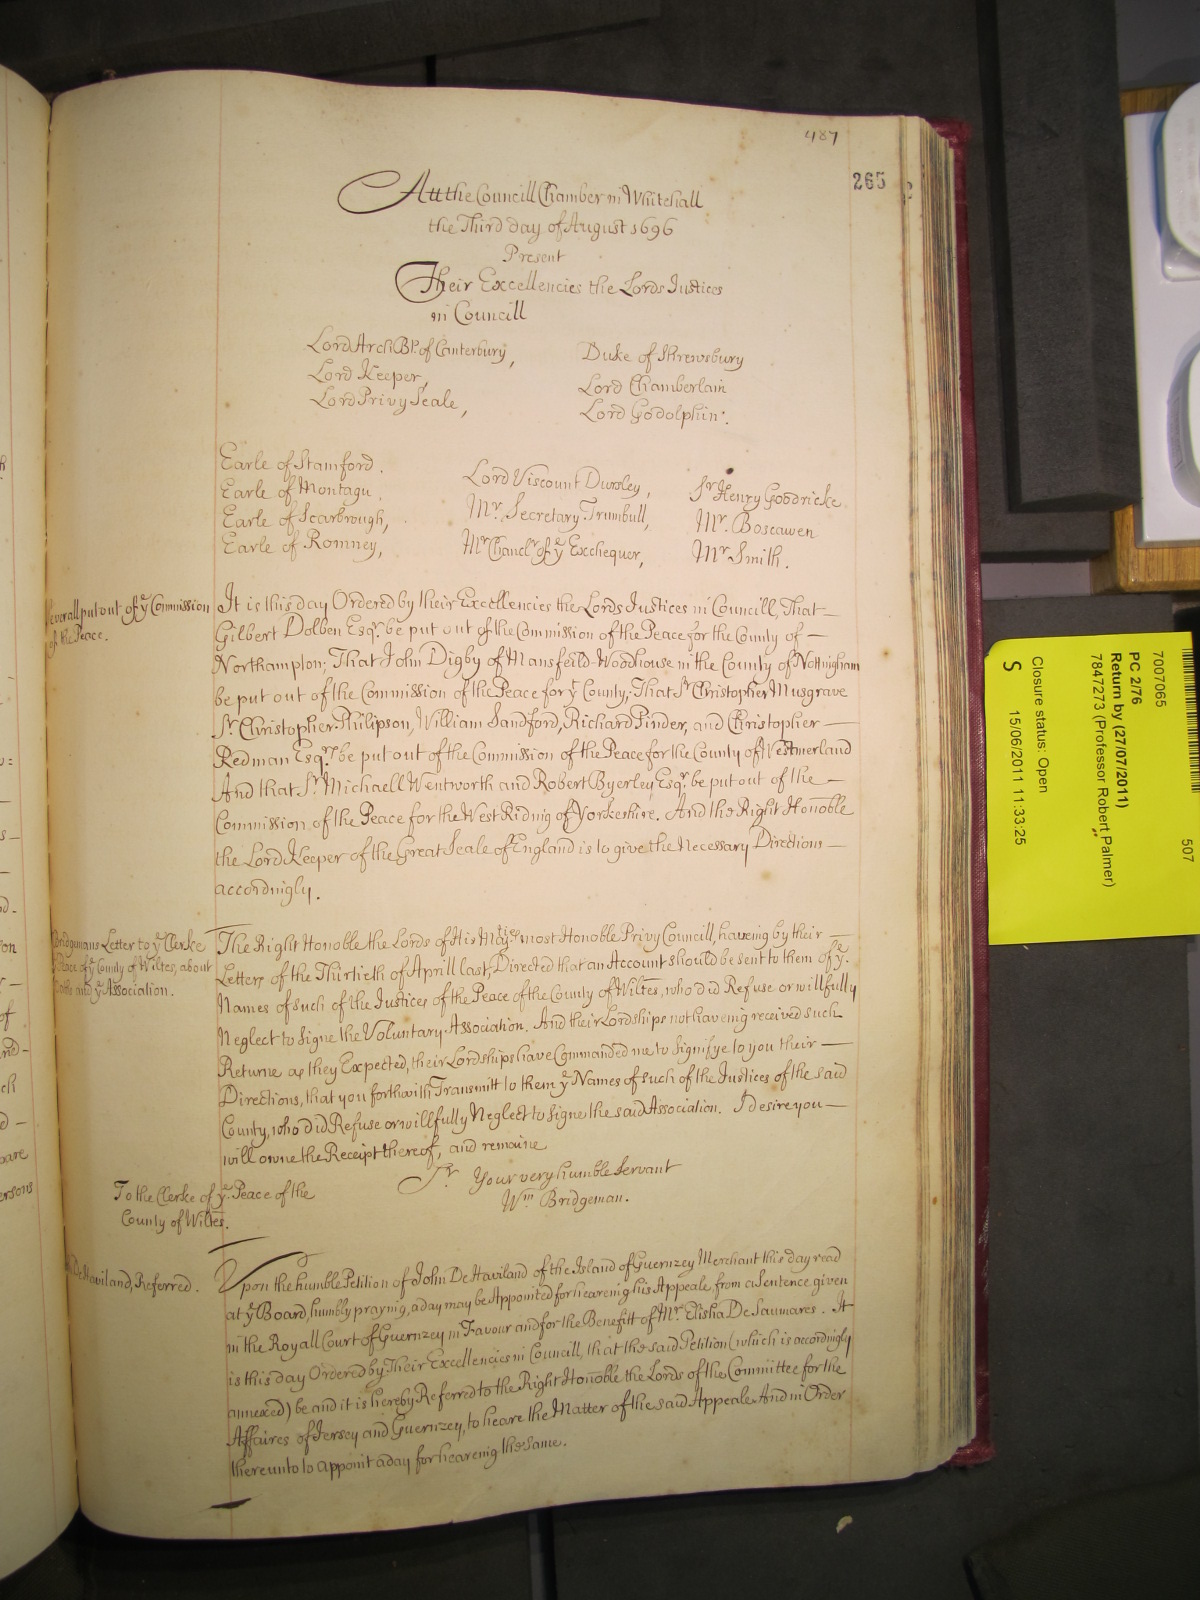 487
265
Att the Councill Chamber in Whitehall
the Third day of August 1696
Present
Their Excellencies the Lords Justices
in Councill
Lord ArchBp. of Canterbury,
Lord Keeper,
Lord Privy Seale,
Duke of Shrewsbury
Lord Chamberlain
Lord Godolphin.
Earle of Stamford.
Earle of Montagu.
Earle of Scarbrough,
Earle of Romney,
Lord Viscount Dursley,
Mr. Secretary Trumbull,
Mr Chancr of ye Exchequer,
Sr Henry Goodricke
Mr. Boscawen
Mr Smith.
Severall put out of ye Commission
of the Peace.
It is this day Ordered by their Excellencies the Lords Justices in Councill, That
Gilbert Dolben Esqr. be put out of the Commission of the Peace for the County of
Northampton; That John Digby of Mansfeild Woodhouse in the County of Nottingham
be put out of the Commission of the Peace for ye County; That Sr Christopher Musgrave
Sr. Christopher Philipson, William Sandford, Richard Pinder, and Christopher
Redman Esqrs. be put out of the Commission of the Peace for the County of Westmerland
And that Sr. Michaell Wentworth and Robert Byerley Esqr. be put out of the
Commission of the Peace for the West Riding of Yorkeshire. And the Right Honoble
the Lord Keeper of the Great Seale of England is to give the Necessary Directions
accordingly.
Bridgmans Letter to ye Clerke
Peace of ye County of Wiltes, about
Oaths and ye Association.
The Right Honoble the Lords of His Maties most Honoble Privy Councill, haveing by their
Letters of the Thirtieth of Aprill last, Directed that an Account should be sent to them of ye.
Names of such of the Justices of the Peace of the County of Wiltes, who did Refuse or willfully
Neglect to Signe the Voluntary Association. And their Lordships not haveing received such
Returne as they Expected, their Lordships have Commanded me to Signifye to you their
Directions, that you forthwith Transmitt to them ye Names of such of the Justices of the said
County, who did Refuse or willfully Neglect to Signe the said Association. I desire you
will owne the Receipt thereof, and remaine
Sr. Your very humble Servant
Wm Bridgeman.
To the Clerke of ye. Peace of the
County of Wiltes.
De Haviland, Referred.
Vpon the humble Petition of John De Haviland of the Island of Guernzey Merchant this day read
at ye Board, humbly praying, a day may be Appointed for heareing his Appeale, from a Sentence given
in the Royall Court of Guernzey in Favour and for the Benefitt of Mr. Elisha De Saumares. It
is this day Ordered by Their Excellencies in Councill, that the said Petition (which is accordingly
annexed) be and it is hereby Referred to the Right Honoble the Lords of the Committee for the
Affaires of Jersey and Guernzey, to heare the Matter of the said Appeale And in Order
thereunto to appoint a day for heareing the same.
7007065
507
PC 2/76
Return by (27/07/2011)
7847273 (Professor Robert Palmer)
Closure status: Open
S
15/06/2011 11:33:25